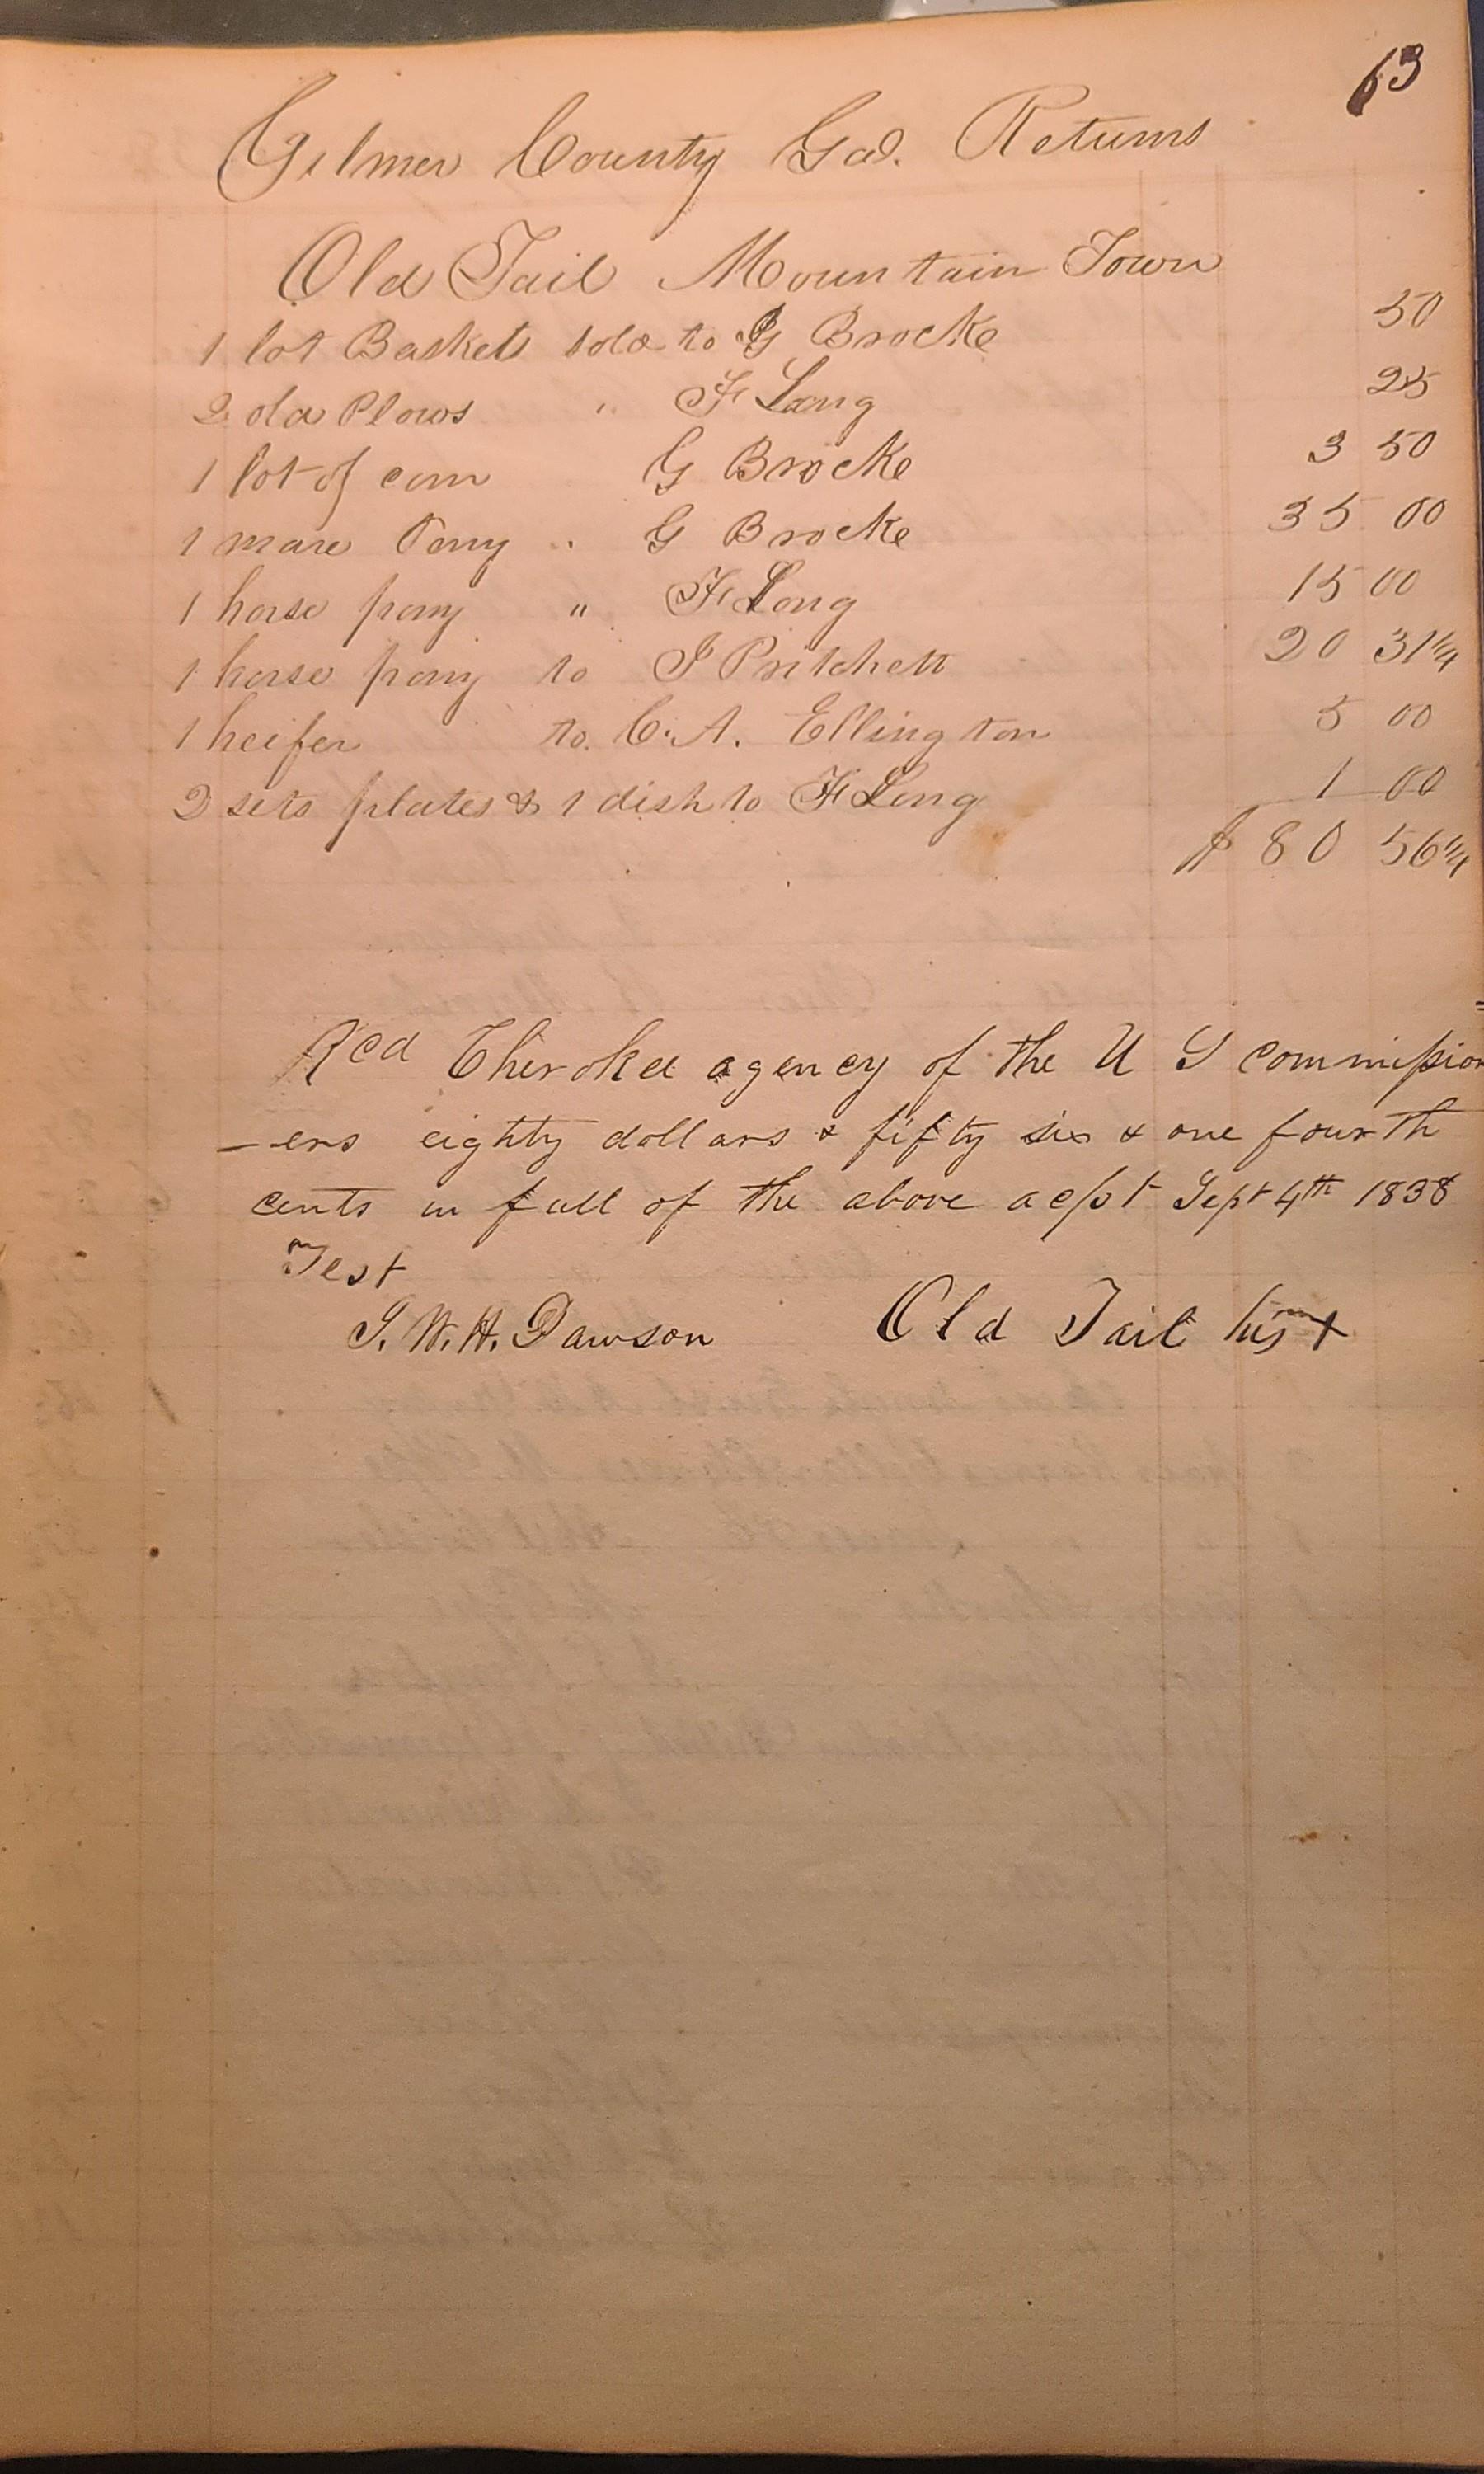 63
Gilmer County Ga. Returns
Old Tail Mountain Town
1 lot Baskets sold to G Brocke 50
2 old Plows " F Long 25
1 lot of corn G Brocke 3 50
1 mare Pony " G Brocke 35 00
1 horse pony " F Long 15 00
1 horse pony to J Pritchett 20 31 1/4
1 heifer to C. A. Ellington 5 00
2 sets plates & 1 dish to F Long 1 00
$ 80 56 1/4
Rcd Cherokee agency of the U S commission
-ers eighty dollars & fifty six & one fourth
cents in full of the above acpt Sept 4th 1838
Test
J. W. H. Dawson Old Tail his x